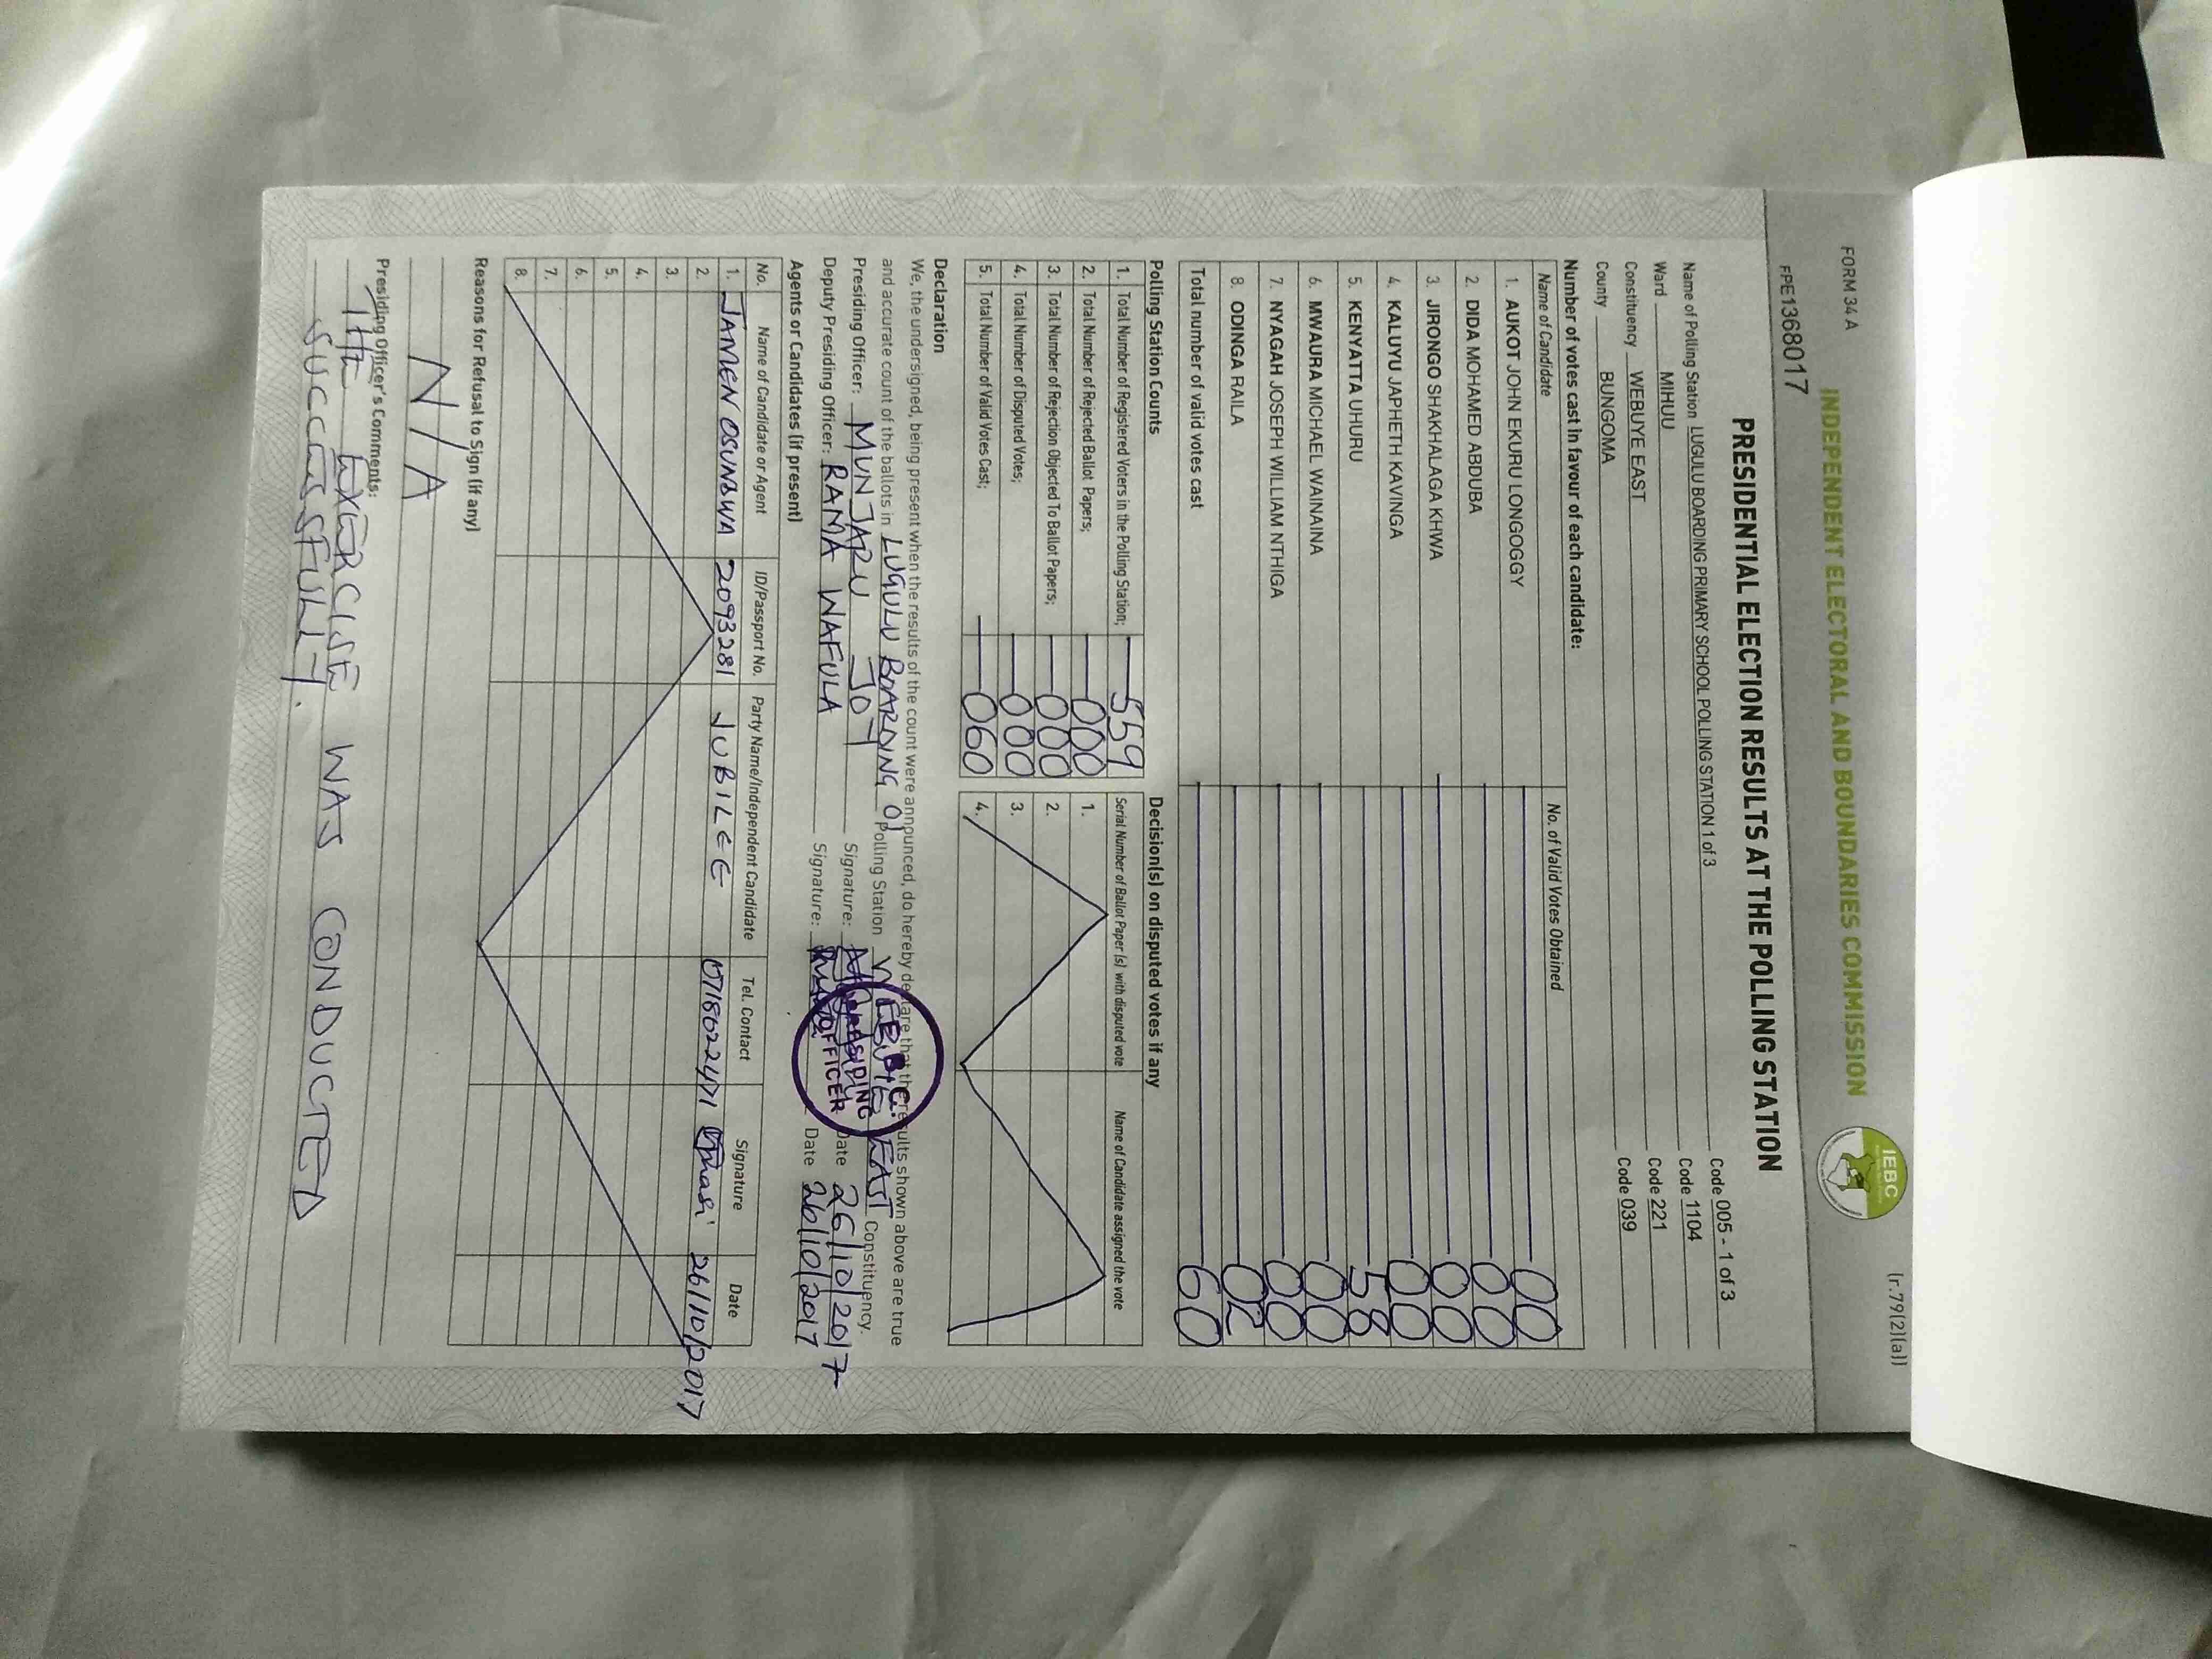 FORM 34 A
(r.79(2)(a))
INDEPENDENT ELECTORAL AND BOUNDARIES COMMISSION
IEBC
FPE1368017
PRESIDENTIAL ELECTION RESULTS AT THE POLLING STATION
Name of Polling Station LUGULU BOARDING PRIMARY SCHOOL POLLING STATION 1 of 3 Code 005 - 1 of 3
Ward MIHUU Code 1104
Constituency WEBUYE EAST Code 221
County BUNGOMA Code 039
Number of votes cast in favour of each candidate:
Name of Candidate No. of Valid Votes Obtained
1. AUKOT JOHN EKURU LONGOGGY 00
2. DIDA MOHAMED ABDUBA 00
3. JIRONGO SHAKHALAGA KHWA 00
4. KALUYU JAPHETH KAVINGA 00
5. KENYATTA UHURU 58
6. MWAURA MICHAEL WAINAINA 00
7. NYAGAH JOSEPH WILLIAM NTHIGA 00
8. ODINGA RAILA 02
Total number of valid votes cast 60
Polling Station Counts
1. Total Number of Registered Voters in the Polling Station; 559
2. Total Number of Rejected Ballot Papers; 000
3. Total Number of Rejection Objected To Ballot Papers; 000
4. Total Number of Disputed Votes; 000
5. Total Number of Valid Votes Cast; 060
Decision(s) on disputed votes if any
Serial Number of Ballot Paper (s) with disputed vote Name of Candidate assigned the vote
1.
2.
3.
4.
Declaration
We, the undersigned, being present when the results of the count were announced, do hereby declare that the results shown above are true
and accurate count of the ballots in LUGULU BOARDING 01 Polling Station WEBUYE EAST Constituency.
Presiding Officer: MUNJARU JOY Signature: Date 26/10/2017
Deputy Presiding Officer: RAMA WAFULA Signature: Date 26/10/2017
PRESIDING
OFFICER
Agents or Candidates (if present)
No. Name of Candidate or Agent ID/Passport No. Party Name/Independent Candidate Tel. Contact Signature Date
1. JAMEN OSUNDWA 2093281 JUBILEE 0718622471 26/10/2017
2.
3.
4.
5.
6.
7.
8.
Reasons for Refusal to Sign (if any)
N/A
Presiding Officer's Comments:
THE EXERCISE WAS CONDUCTED
SUCCESSFULLY.